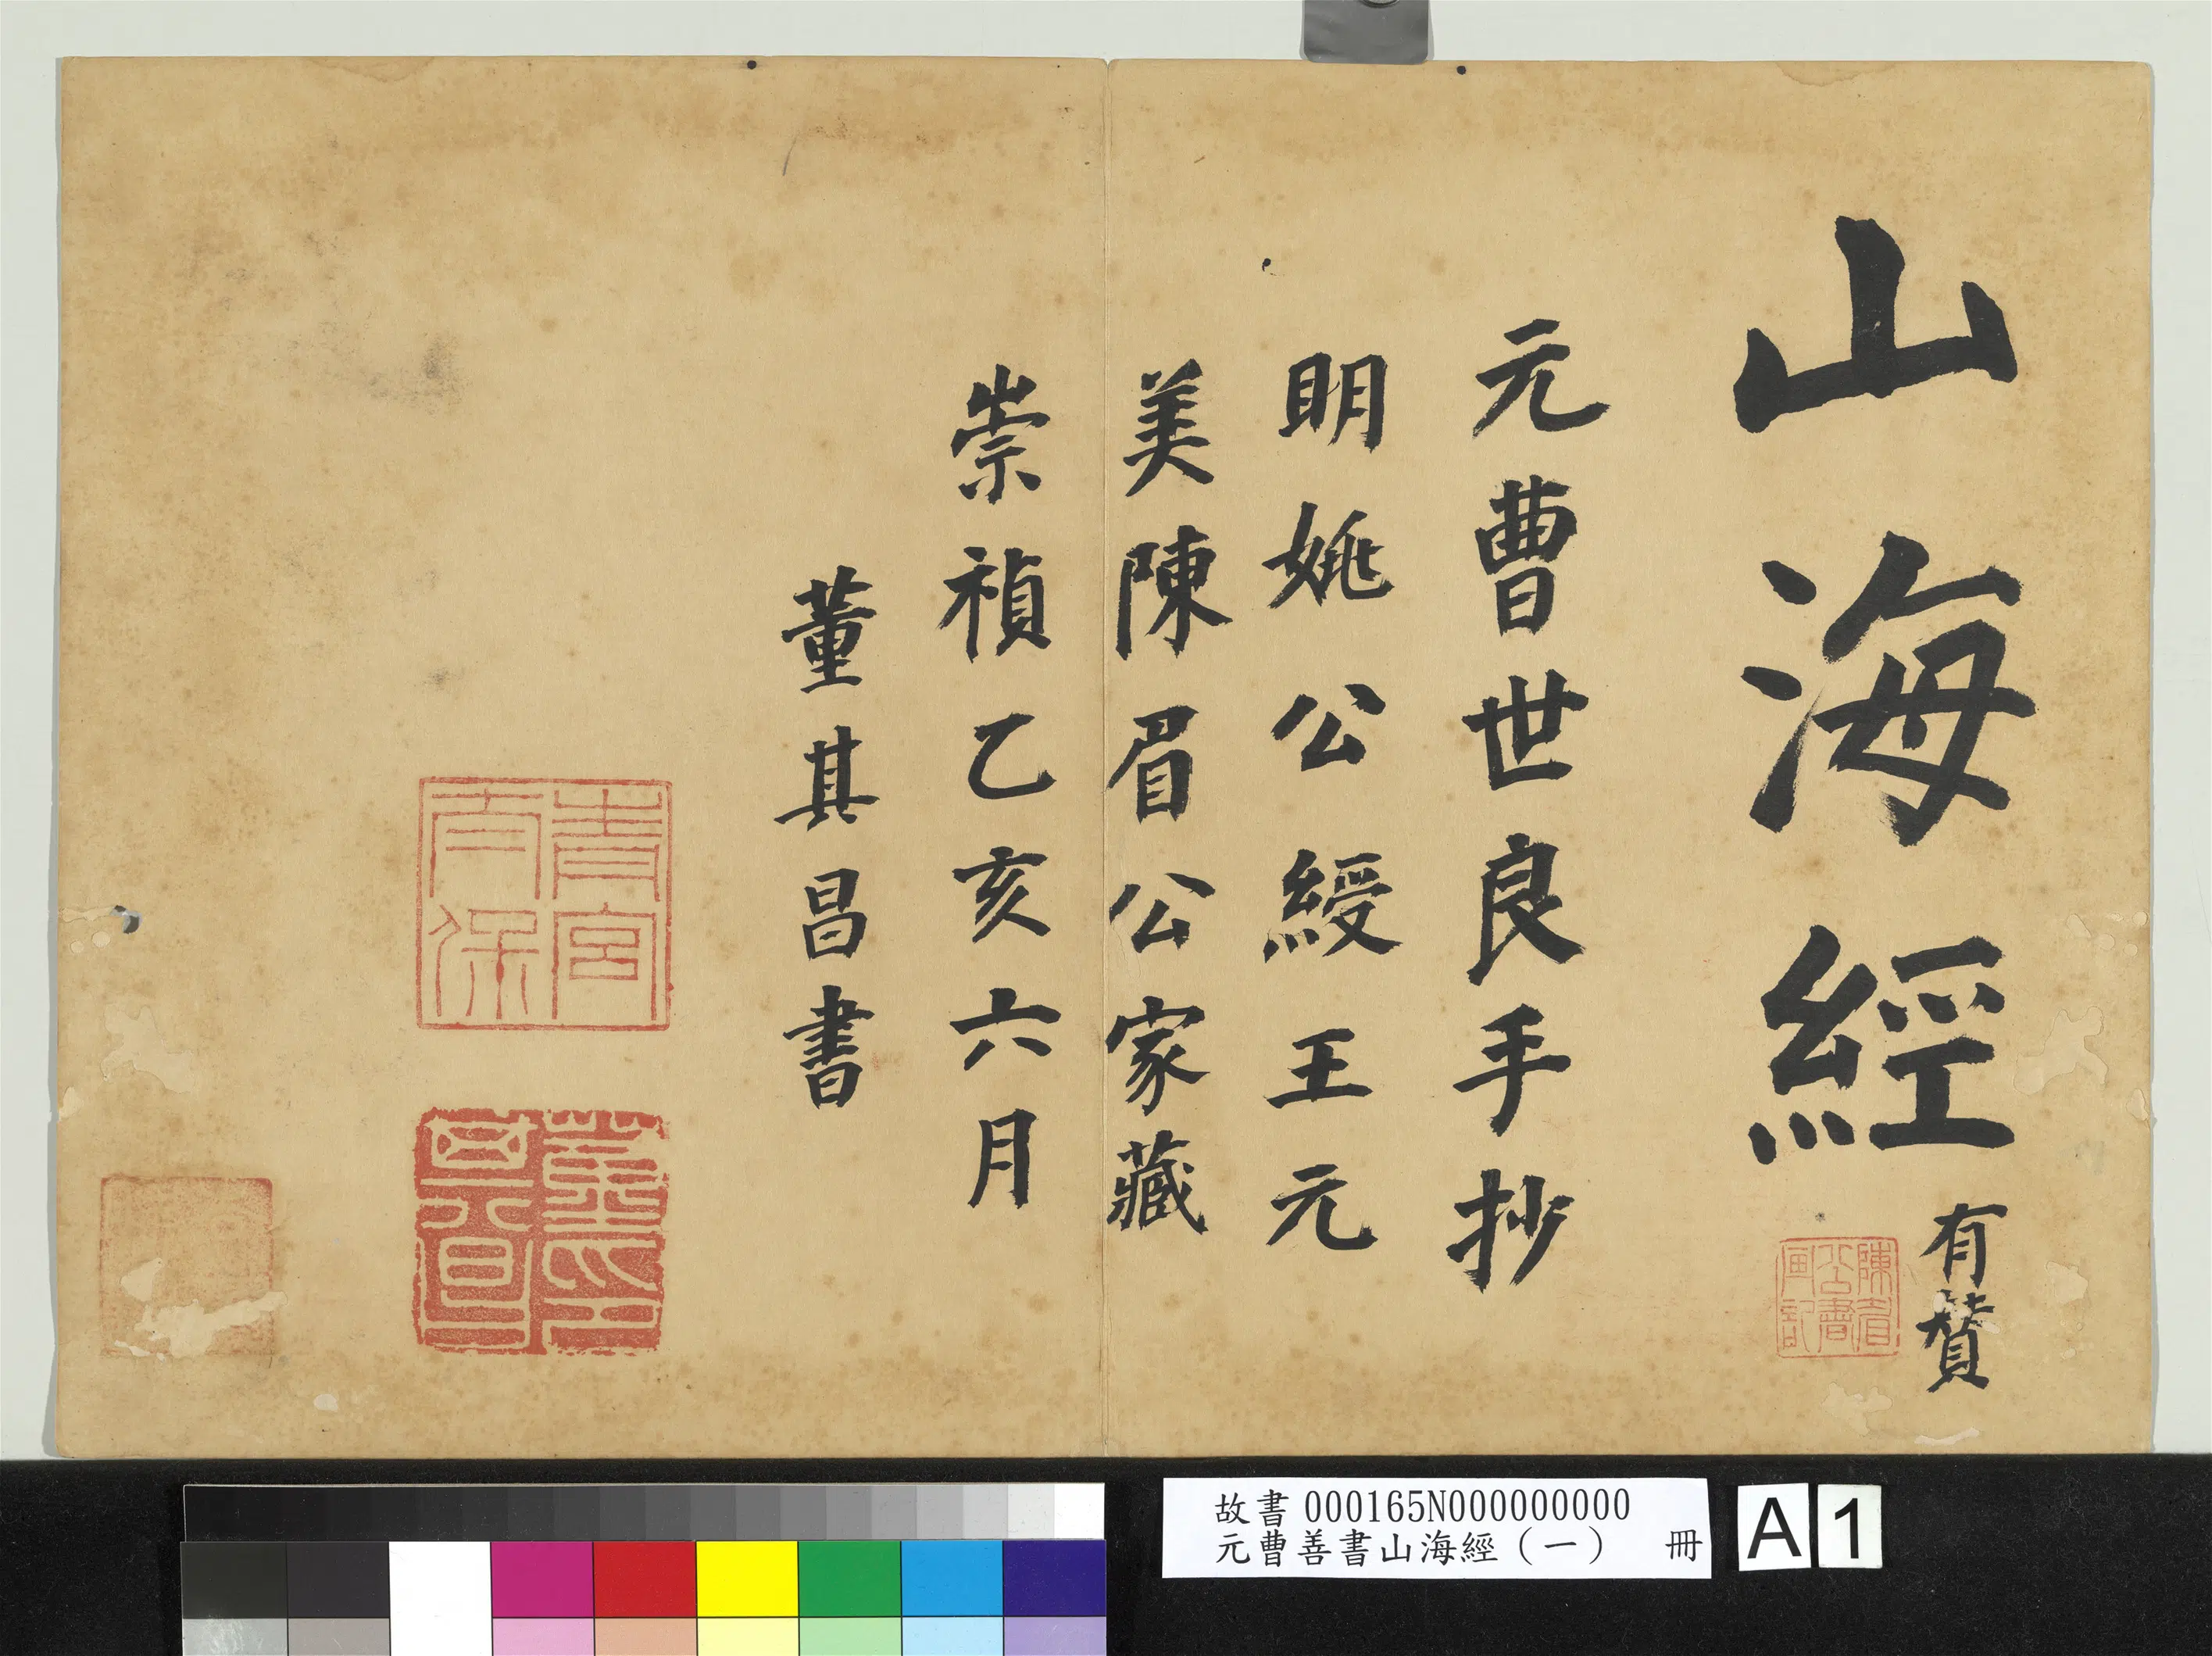 山海經有贊
元曹世良手抄
明姚公綬王元
美陳眉公家藏
崇禎乙亥六月
董其昌書
青宮太保
陳眉公書画記
故書000165N000000000
元曹善書山海經（一） 冊
A 1